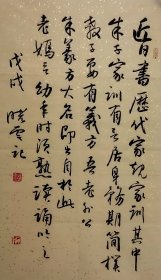 近日書歷代家規家訓其中
朱子家訓有云居身務期簡樸
教子要有義方吾老外公
朱義方大名即出自於此
老媽言幼年時須熟讀誦吟之
戊戌 曉雲記